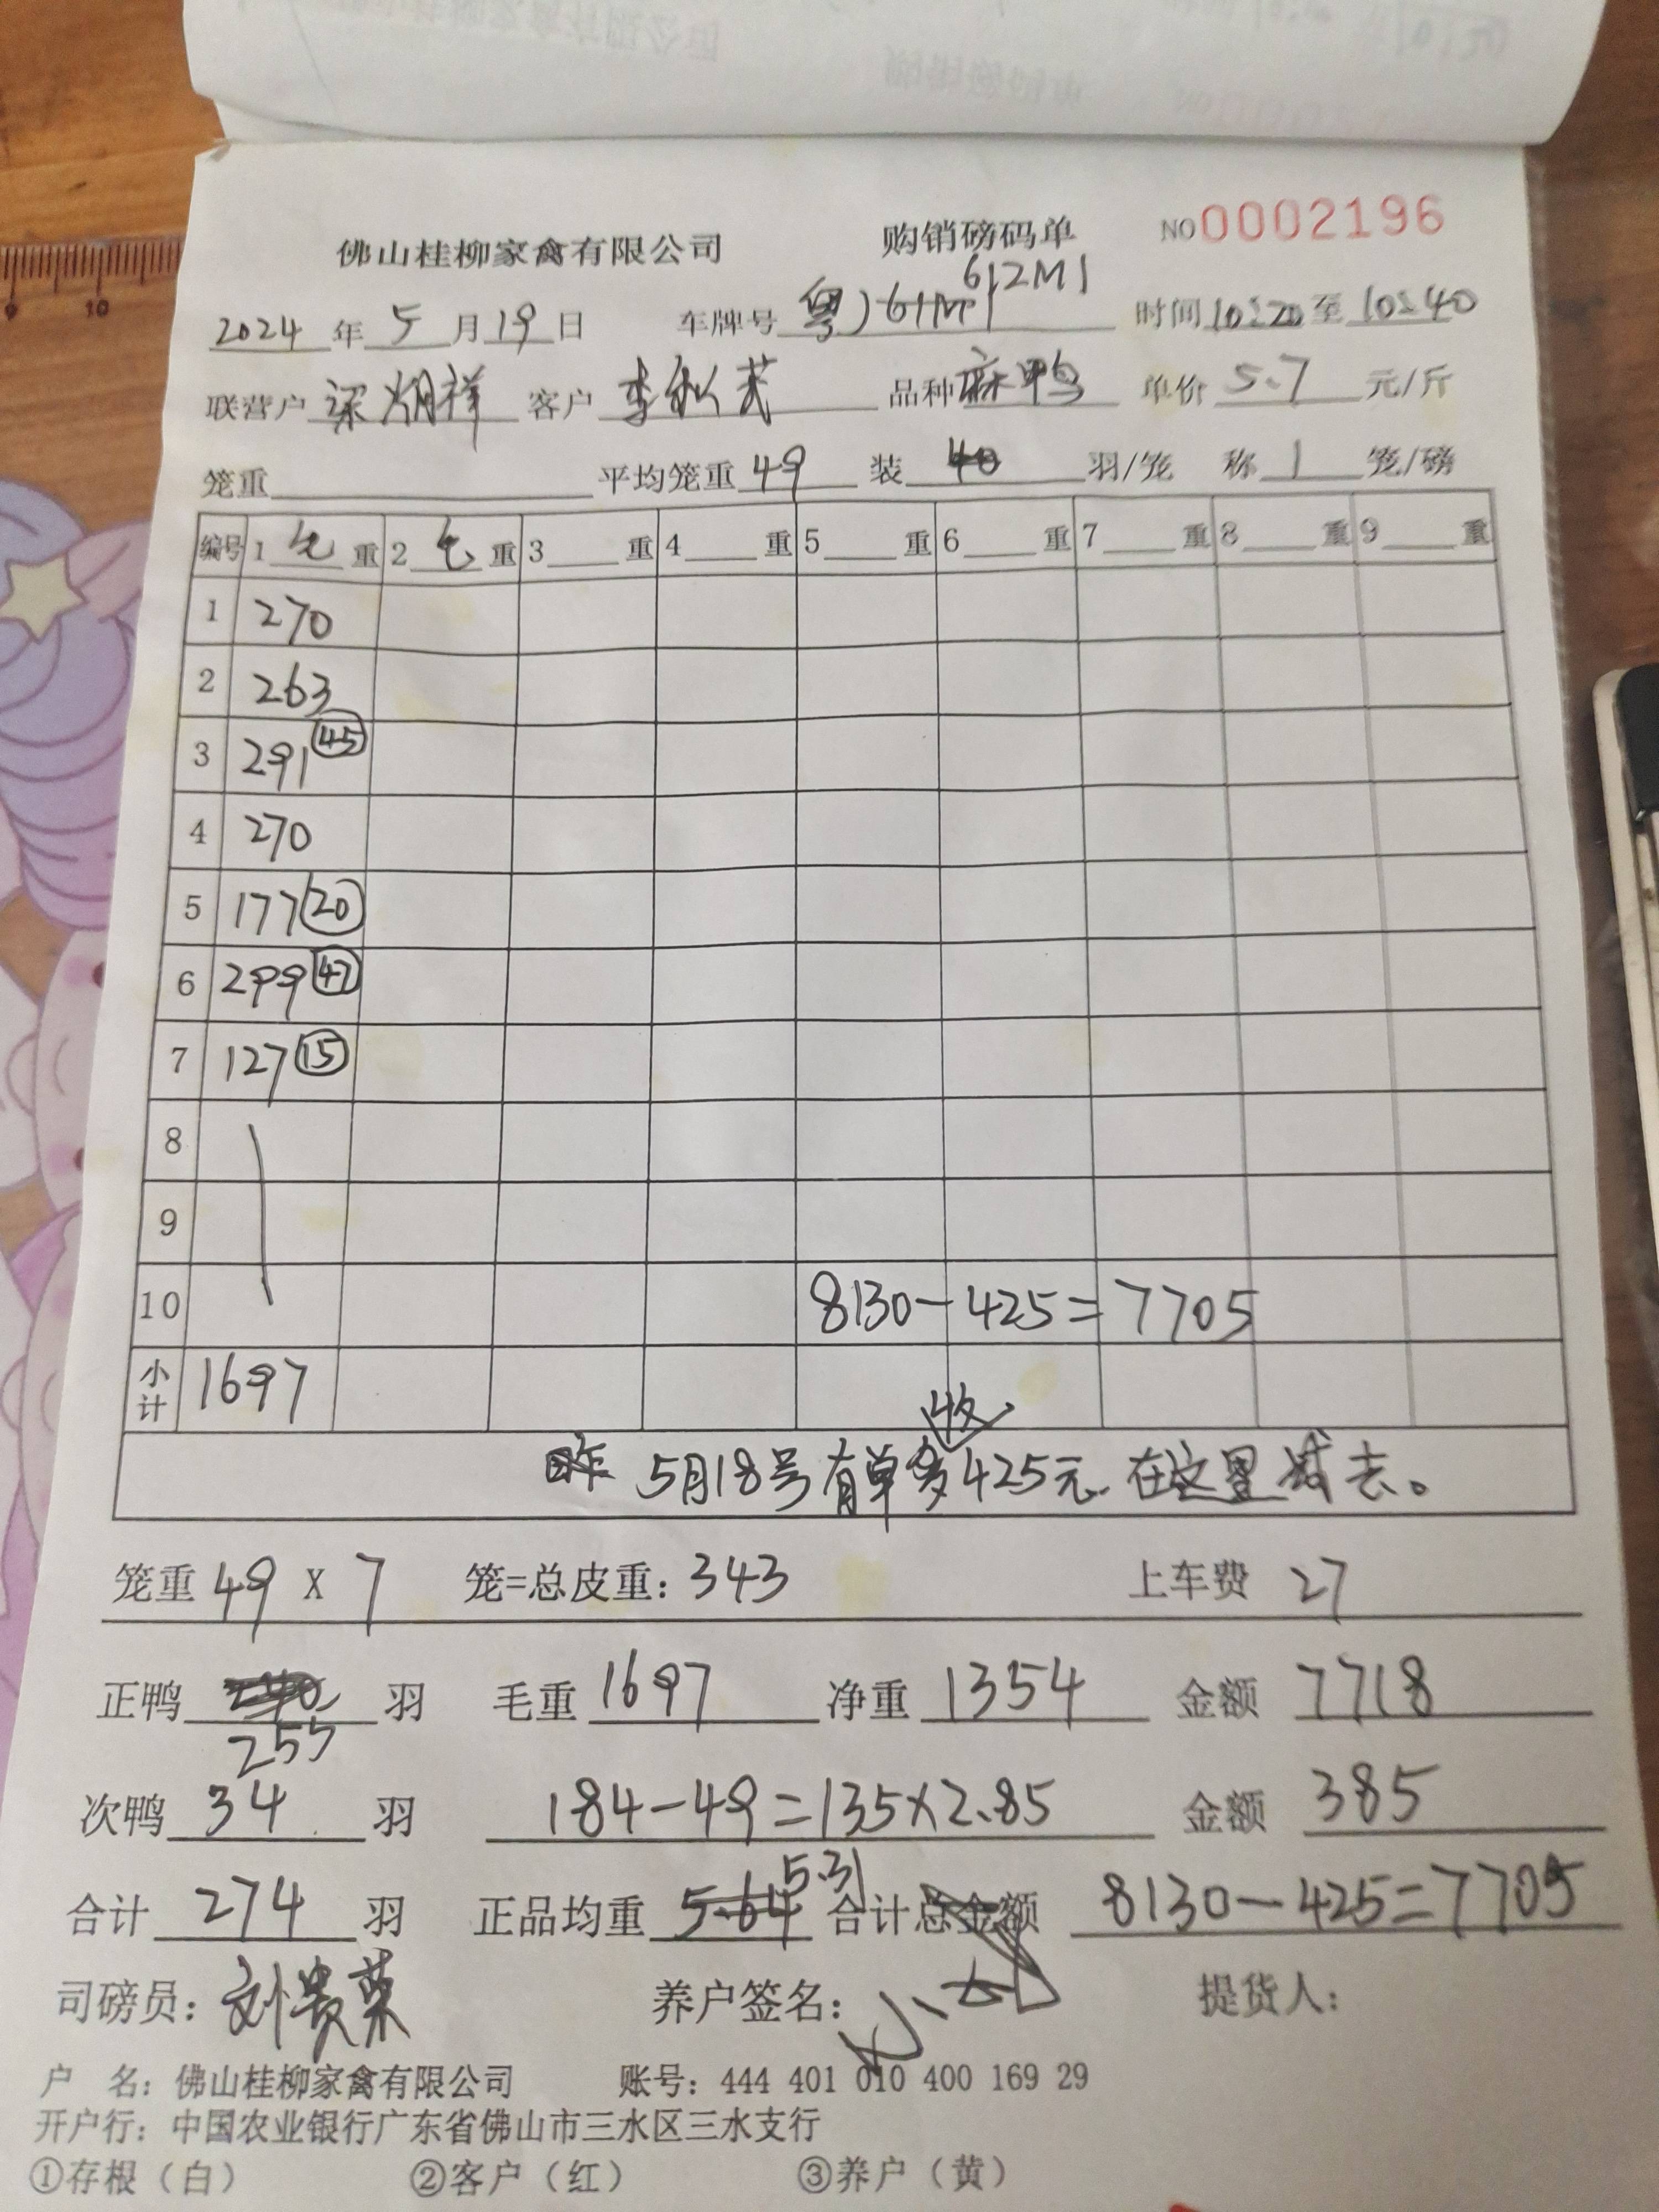 佛山桂柳家禽有限公司 购销磅码单 NO 0002196
612M1
2024 年 5 月 19 日 车牌号 粤J 时间 10:20 至 10:40
联营户 梁炳祥 客户 李秋芳 品种 麻鸭 单价 5.7 元/斤
笼重 平均笼重 49 装 40 羽/笼 称 1 笼/磅
编号 1 毛 重 2 毛 重 3 重 4 重 5 重 6 重 7 重 8 重 9 重
1 270
2 263
3 291 45
4 270
5 177 20
6 299 47
7 127 15
8
9
10 8130-425=7705
小计 1697
收
5月18号有单多425元.在这里减去。
笼重 49 X 7 笼=总皮重: 343 上车费 27
正鸭 羽 毛重 1697 净重 1354 金额 7718
255
次鸭 34 羽 184-49=135×2.85 金额 385
5.31
合计 274 羽 正品均重 5.64 合计总金额 8130-425=7705
司磅员: 刘贵荣 养户签名: 提货人:
户 名: 佛山桂柳家禽有限公司 账号: 444 401 010 400 169 29
开户行: 中国农业银行广东省佛山市三水区三水支行
①存根（白） ②客户（红） ③养户（黄）